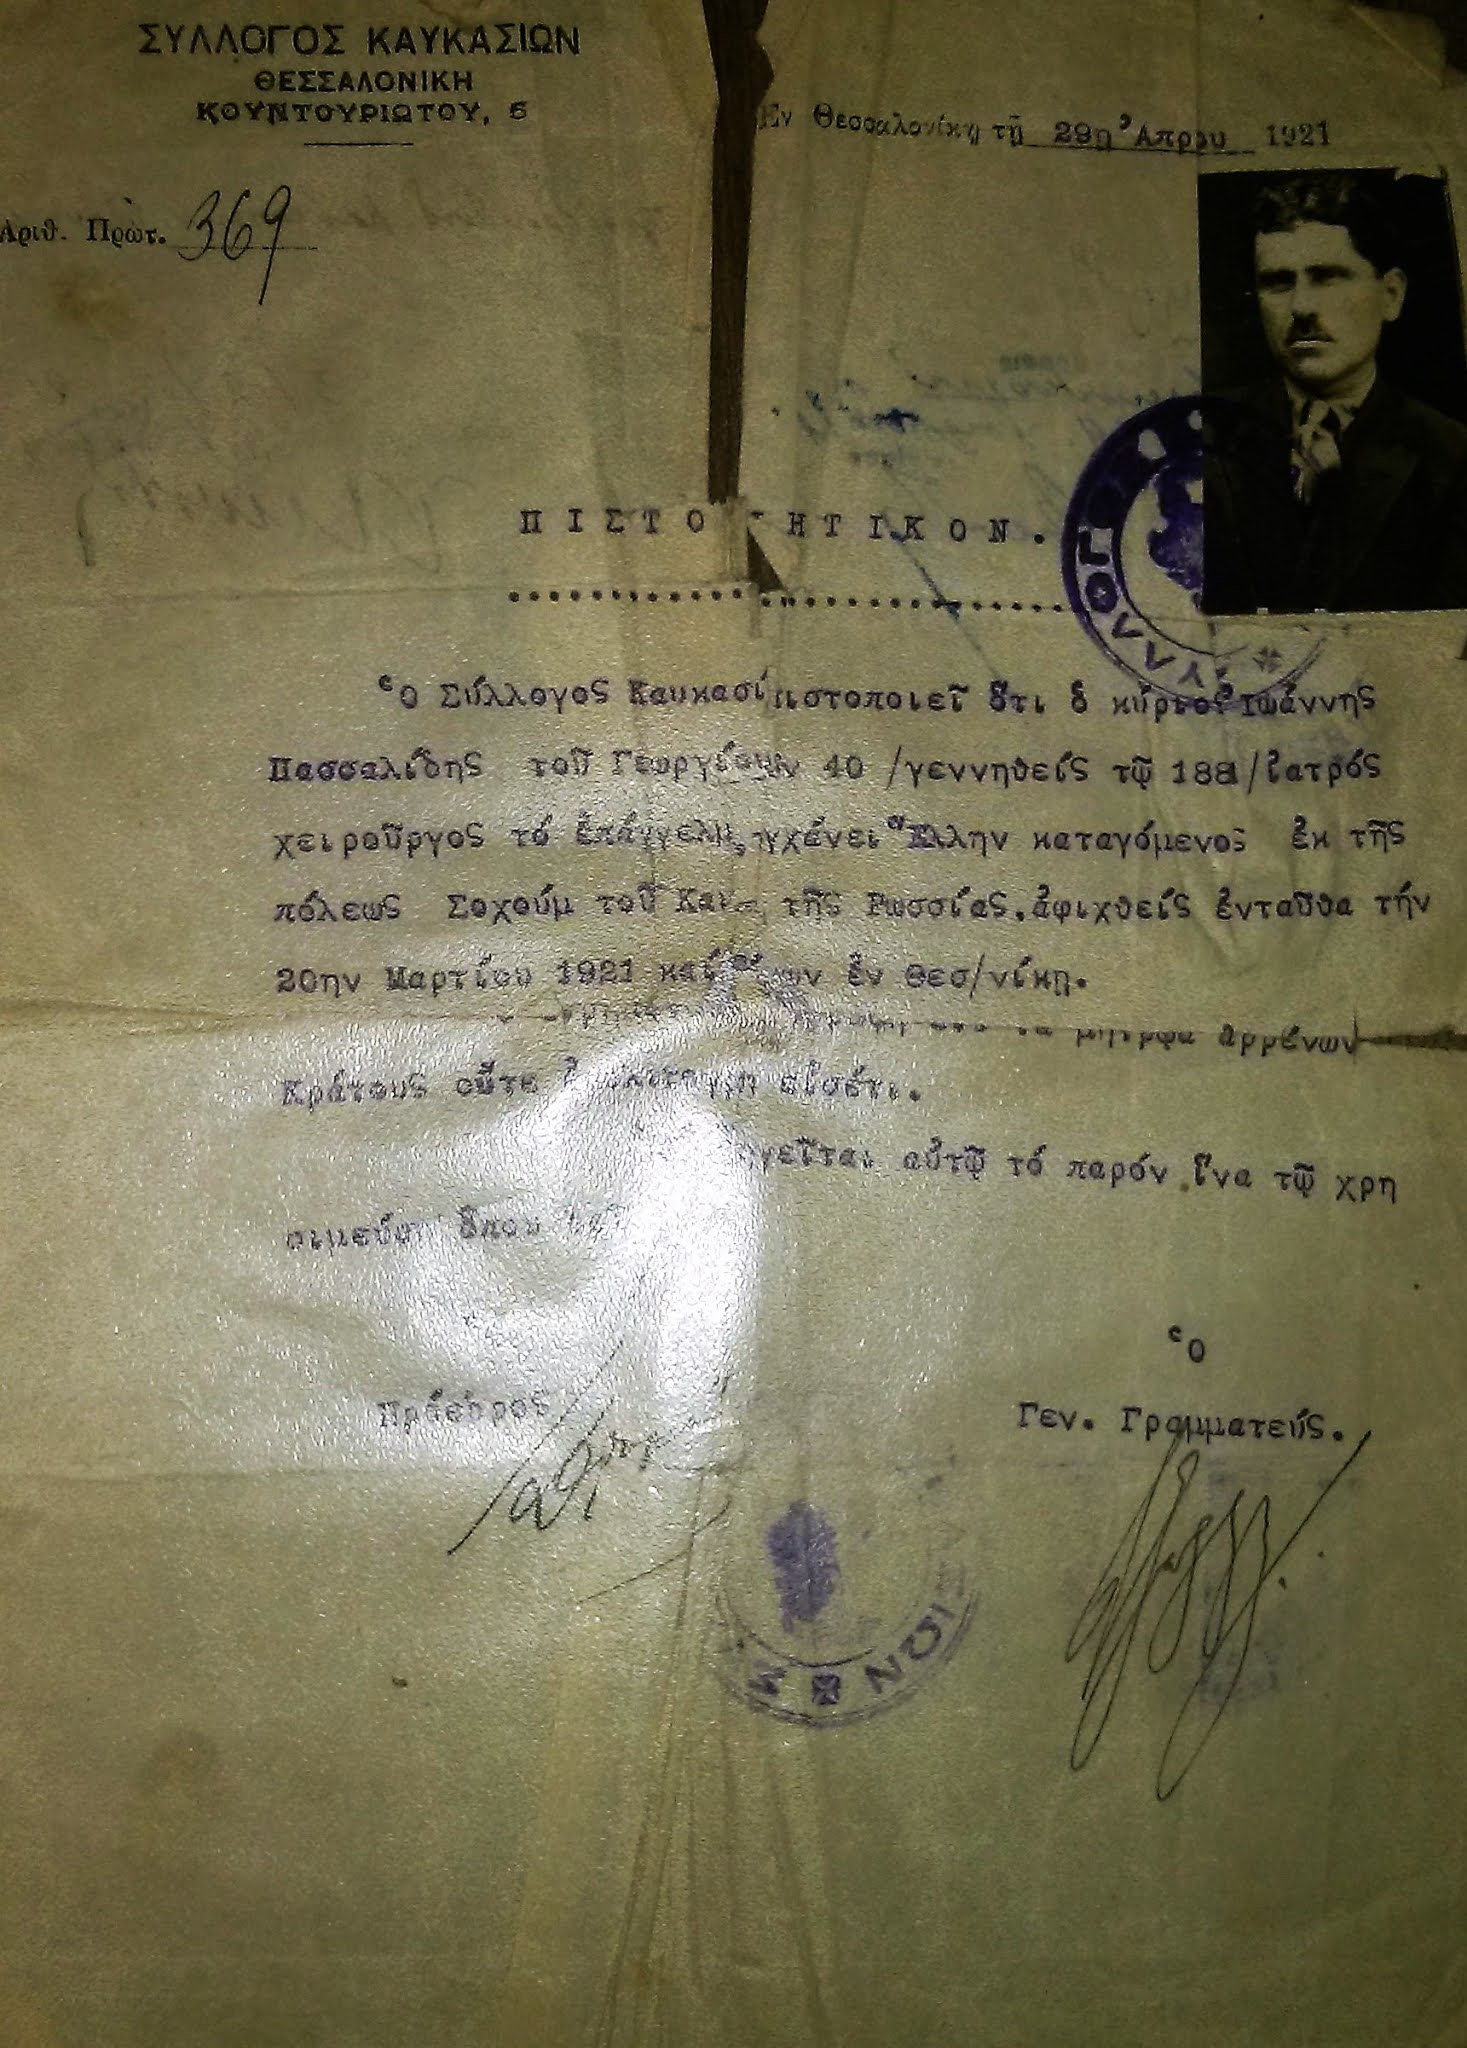 ΣΥΛΛΟΓΟΣ ΚΑΥΚΑΣΙΩΝ
ΘΕΣΣΑΛΟΝΙΚΗ
ΚΟΥΝΤΟΥΡΙΩΤΟΥ, 6
Ἐν Θεσσαλονίκῃ τῇ 29η Ἀπρου 1921
Ἀριθ. Πρωτ. 369
ΠΙΣΤΟ ΗΤΙΚΟΝ.
ΣΥΛΛΟΓΟΣ
Ὁ Σύλλογος Καυκασί πιστοποιεῖ ὅτι ὁ κύριος Ἰωάννης
Πασσαλίδης τοῦ Γεωργίου 40 /γεννηθείς τῷ 1881/ἰατρός
χειροῦργος τό ἐπάγγελμ Ἕλλην καταγόμενος ἐκ τῆς
πόλεως Σοχούμ τοῦ Καυ τῆς Ρωσσίας, ἀφιχθείς ἐνταῦθα τήν
20ην Μαρτίου 1921 καί ἐν Θεσ/νίκῃ.
τα μητρῳα ἀρρένων
Κράτους οὔτε εἰσέτι.
αὐτῷ τό παρόν ἵνα τῷ χρη
σιμεύσῃ ὅπου
Ὁ
Πρόεδρος
Γεν. Γραμματεύς.
ΙΩΝ